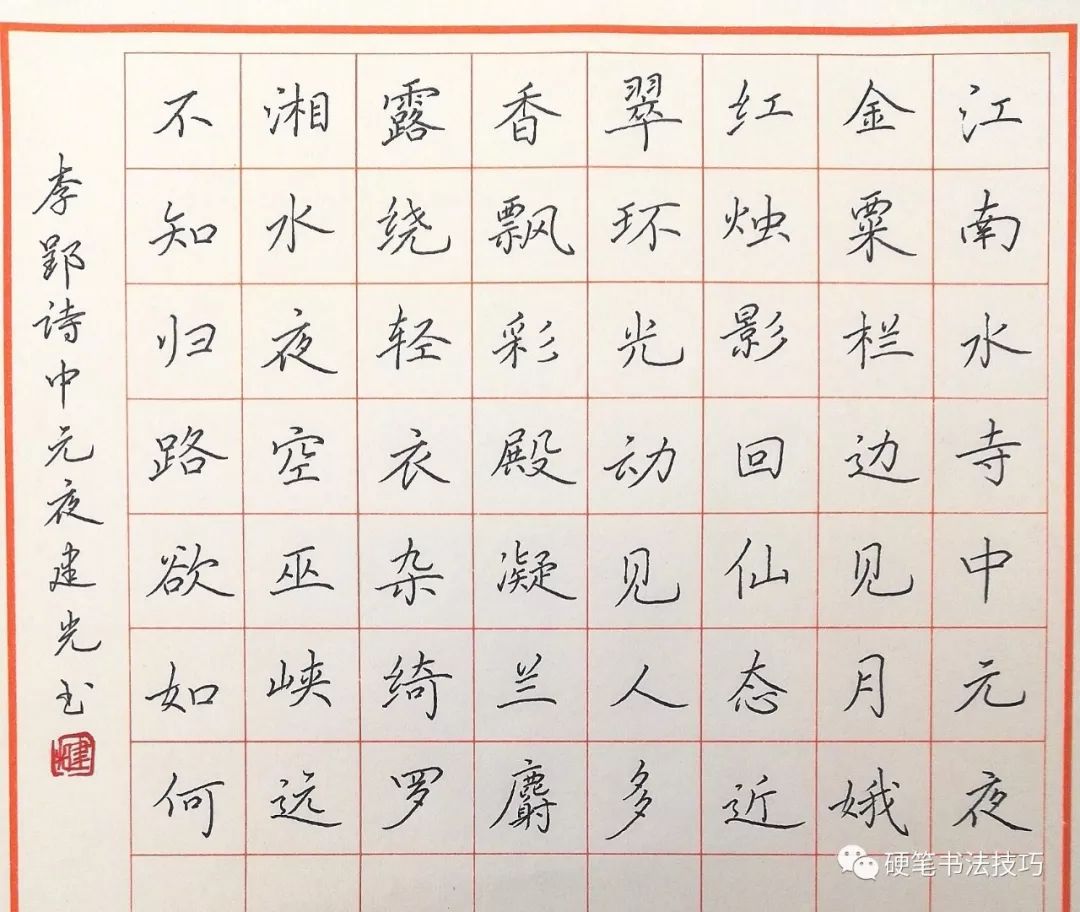 江南水寺中元夜
金粟栏边见月娥
红烛影回仙态近
翠环光动见人多
香飘彩殿凝兰麝
露绕轻衣杂绮罗
湘水夜空巫峡远
不知归路欲如何
李郢诗中元夜建光书
硬笔书法技巧